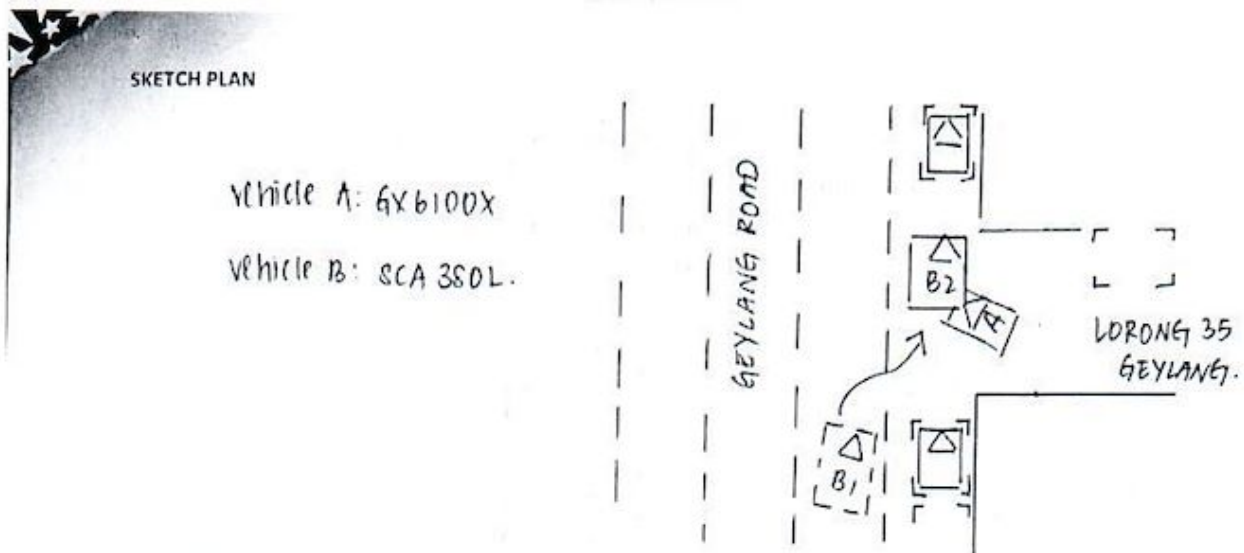 SKETCH PLAN
vehicle A: GX6100X
vehicle B: SCA 3S0L.
GEYLANG ROAD
B2
A
B1
LORONG 35
GEYLANG.